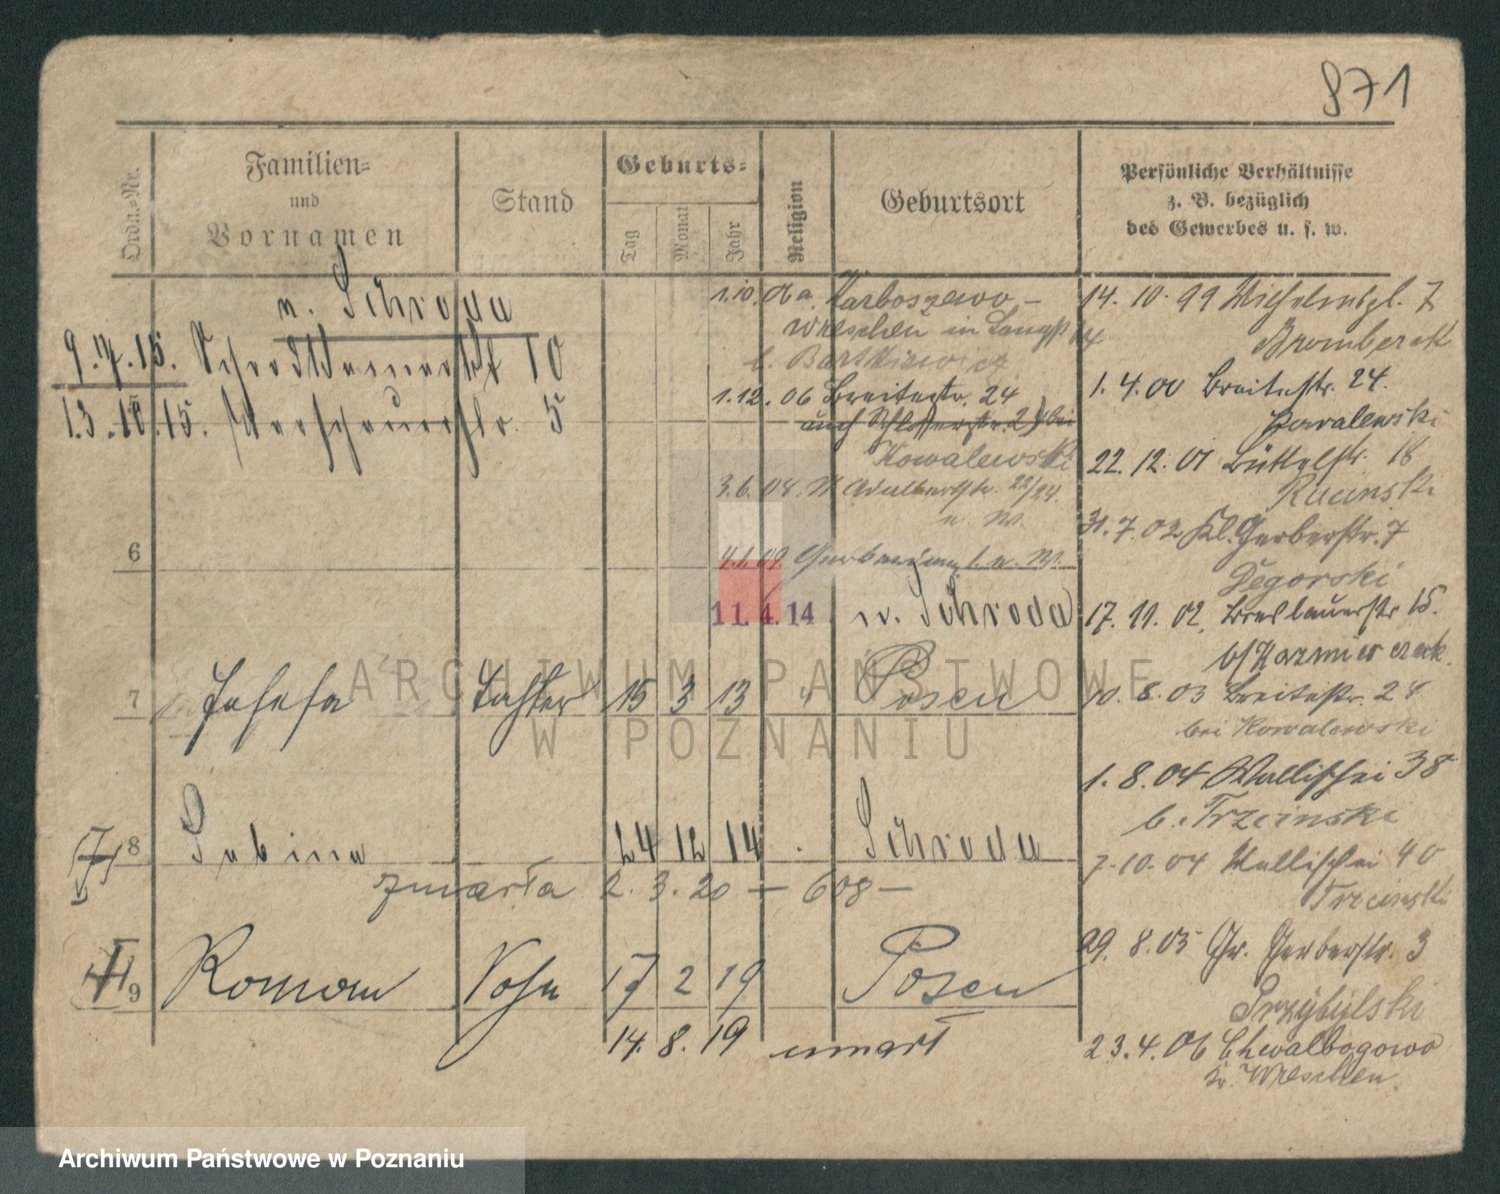 871
Ordn.-Nr.
Familien-
und
Vornamen
Stand
Geburts-
Tag
Monat
Jahr
Religion
Geburtsort
Persönliche Verhältnisse
z. B. bezüglich
des Gewerbes u. s. w.
n. Schroda
9. 15. 10
13. 10. 15. 5
1.10.06 a. Karboszewo,
Wreschen in
b. Bartkiewicz
1.12.06 Breitestr. 24
auch Schlosserstr. 2 bei
Kowalewski
3.6.08. Adalbertstr. 22/24.
n. W.
11.4.14 n. Schroda
6
7 Josefa Tochter 15 3 13 Posen
8 Sabina 24 12 14 Schroda
zmarła 2. 3. 20 — 608 —
9 Roman Sohn 17 2 19 Posen
14. 8. 19 umarł
14. 10. 99 Wilhelmspl. 7
1. 4. 00 Breitestr. 24.
Kowalewski
22. 12. 01 Büttelstr. 18
Rucinski
31. 7. 02 Kl. Gerberstr. 7
Degorski
17. 11. 02. Breslauerstr. 15.
b/ Kazmierczak.
10. 8. 03 Breitestr. 24
bei Kowalewski
1. 8. 04 Wallischei 38
b. Trzcinski
7. 10. 04 Wallischei 40
Trzcinski
29. 8. 05 Gr. Gerberstr. 3
Przybylski
23. 4. 06 Chwalbogowo
Kr. Wreschen.
ARCHIWUM PAŃSTWOWE
W POZNANIU
Archiwum Państwowe w Poznaniu